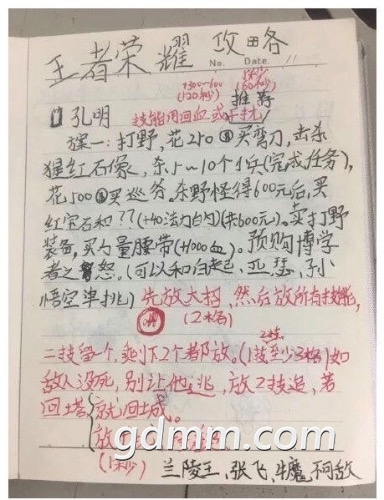 王者荣耀 攻略
No. Date.
+300~600
(120秒)
(60秒)
推荐
1 孔明 技能用回血或干扰
一:打野,花250买弯刀,击杀
猩红石像,杀5~10个小兵(完成任务),
花500买巡斧。杀野怪得600元后,买
红宝石和??(+40法力)(共600元)。卖打野
装备,买力量腰带(+1000血)。预购博学
者之怒。(可以和白起、亚瑟、孙
悟空单挑) 先放大招,然后放所有技能,
(2格)
二技留一个,剩下2个都放。(1技至少3格)如
敌人没死,别让他逃,放2技追,若
回塔 就回城。
放
(1秒)
兰陵王,张飞,牛魔,阿敌
gdmm.com